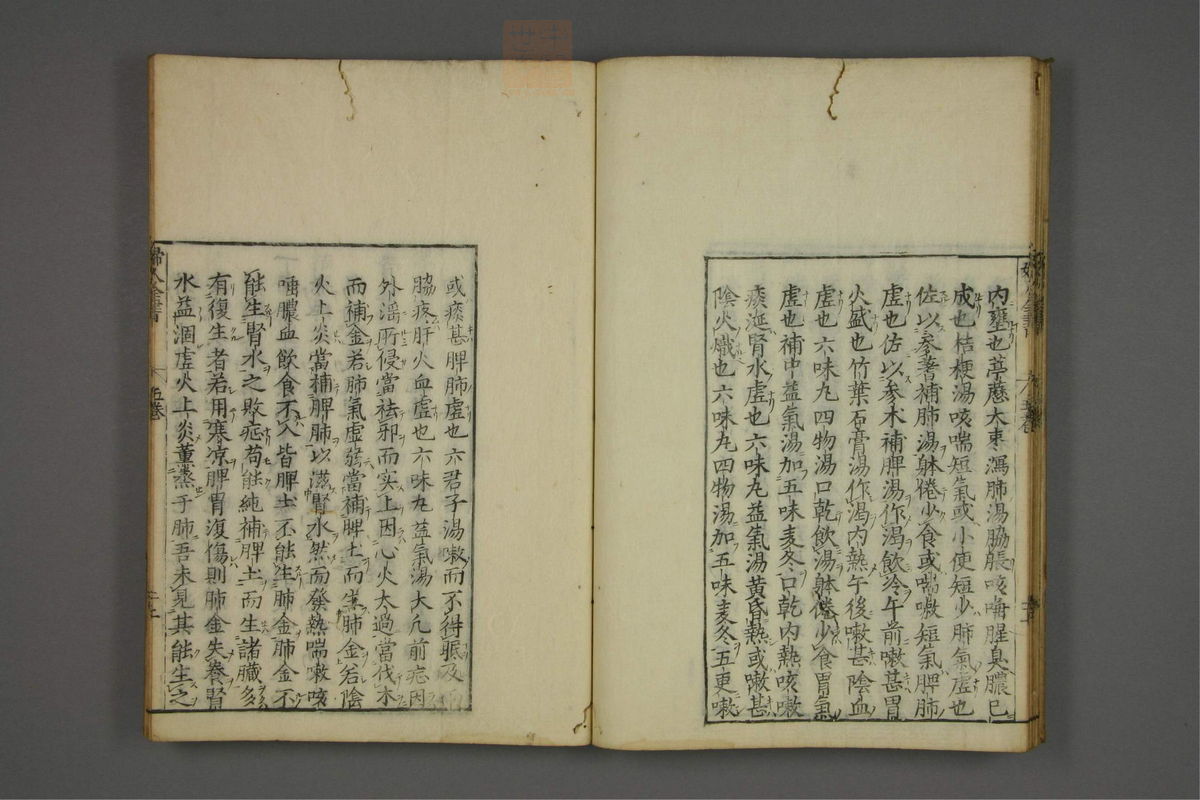 内壅也葶藶大棗瀉肺湯脇脹咳嗽腥臭膿已
成也桔梗湯咳喘短氣或小便短少肺氣虛也
佐以參蓍補肺湯躰倦少食或喘嗽短氣脾肺
虛也佐以參术補脾湯作渴飲冷午前嗽甚胃
火盛也竹葉石膏湯作渴内熱午後嗽甚陰血
虛也六味丸四物湯口乾飲湯躰倦少食胃氣
虛也補中益氣湯加五味麦冬口乾内熱咳嗽
痰涎腎水虛也六味丸益氣湯黄昏熱或嗽甚
陰火熾也六味丸四物湯加五味麦冬五更嗽
或痰甚脾肺虛也六君子湯嗽而不得眠及
脇疼肝火血虛也六味丸益氣湯大凢前症因
外滛所侵當祛邪而实土因心火太過當伐木
而補金若肺氣虛弱當補脾土而生肺金若陰
火上炎當補脾肺以滋腎水然而發熱喘嗽咳
唾膿血飲食不入皆脾土不能生肺金肺金不
能生腎水之敗症苟能純補脾土而生諸臟多
有復生者若用寒凉脾胃復傷則肺金失養腎
水益涸虛火上炎薰蒸于肺吾未見其能生之
婦人全書
五巻